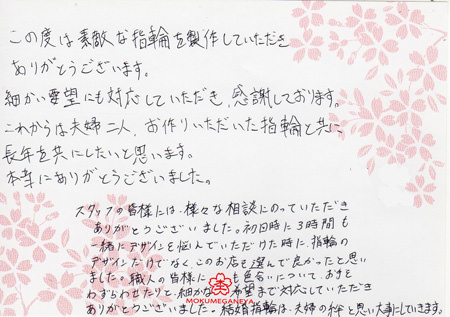 この度は素敵な指輪を製作していただき
ありがとうございます。
細かい要望にも対応していただき、感謝しております。
これからは夫婦二人、お作りいただいた指輪と共に
長年を共にしたいと思います。
本当にありがとうございました。
スタッフの皆様には、様々な相談にのっていただき
ありがとうございました。初回時に3時間も
一緒にデザインを悩んでいただけた時に、指輪の
デザインだけでなくこのお店を選んで良かったと思い
ました。職人の皆様に も色合いについて、お手を
わずらわせたりと、細かな希望まで対応していただき
ありがとうございました。結婚指輪は、夫婦の絆と思い大事にしていきます。
MOKUMEGANEYA